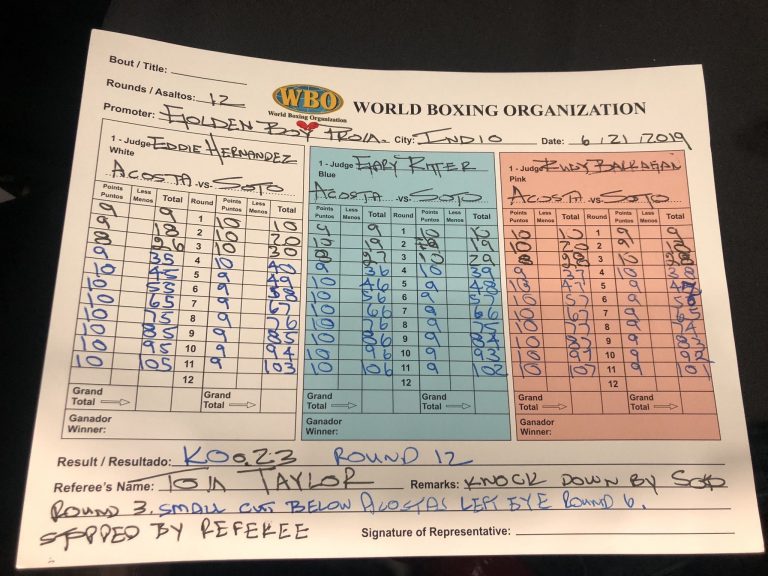 Bout / Title:
Rounds / Asaltos: 12
WBO
World Boxing Organization
WORLD BOXING ORGANIZATION
Promoter: GOLDEN BOY PROM. City: INDIO Date: 6/21/2019
1 - Judge EDDIE HERNANDEZ
White
ACOSTA -vs- SOTO
1 - Judge GARY RITTER
Blue
ACOSTA -vs- SOTO
1 - Judge RUDY BARRAGAN
Pink
ACOSTA -vs- SOTO
Points Puntos Less Menos Total Round Points Puntos Less Menos Total
9 9 1 10 10
9 18 2 10 20
8 26 3 10 30
9 35 4 10 40
10 45 5 9 49
10 55 6 9 58
10 65 7 9 67
10 75 8 9 76
10 85 9 9 85
10 95 10 9 94
10 105 11 9 103
12
Grand Total Grand Total
Ganador
Winner:
Points Puntos Less Menos Total Round Points Puntos Less Menos Total
9 9 1 10 10
10 19 2 9 19
8 27 3 10 29
9 36 4 10 39
10 46 5 9 48
10 56 6 9 57
10 66 7 9 66
10 76 8 9 75
10 86 9 9 84
10 96 10 9 93
10 106 11 9 102
12
Grand Total Grand Total
Ganador
Winner:
Points Puntos Less Menos Total Round Points Puntos Less Menos Total
10 10 1 9 9
10 20 2 9
3 10
9 4 10
10 5 9
10 57 6 9
10 7 9
10 8 9
10 9 9
10 97 10 9
10 11 9
12
Grand Total Grand Total
Ganador
Winner:
Result / Resultado: KO 0.23 ROUND 12
Referee's Name: TOM TAYLOR Remarks: KNOCK DOWN BY SOTO
ROUND 3. SMALL CUT BELOW ACOSTAS LEFT EYE ROUND 6.
STOPPED BY REFEREE Signature of Representative: